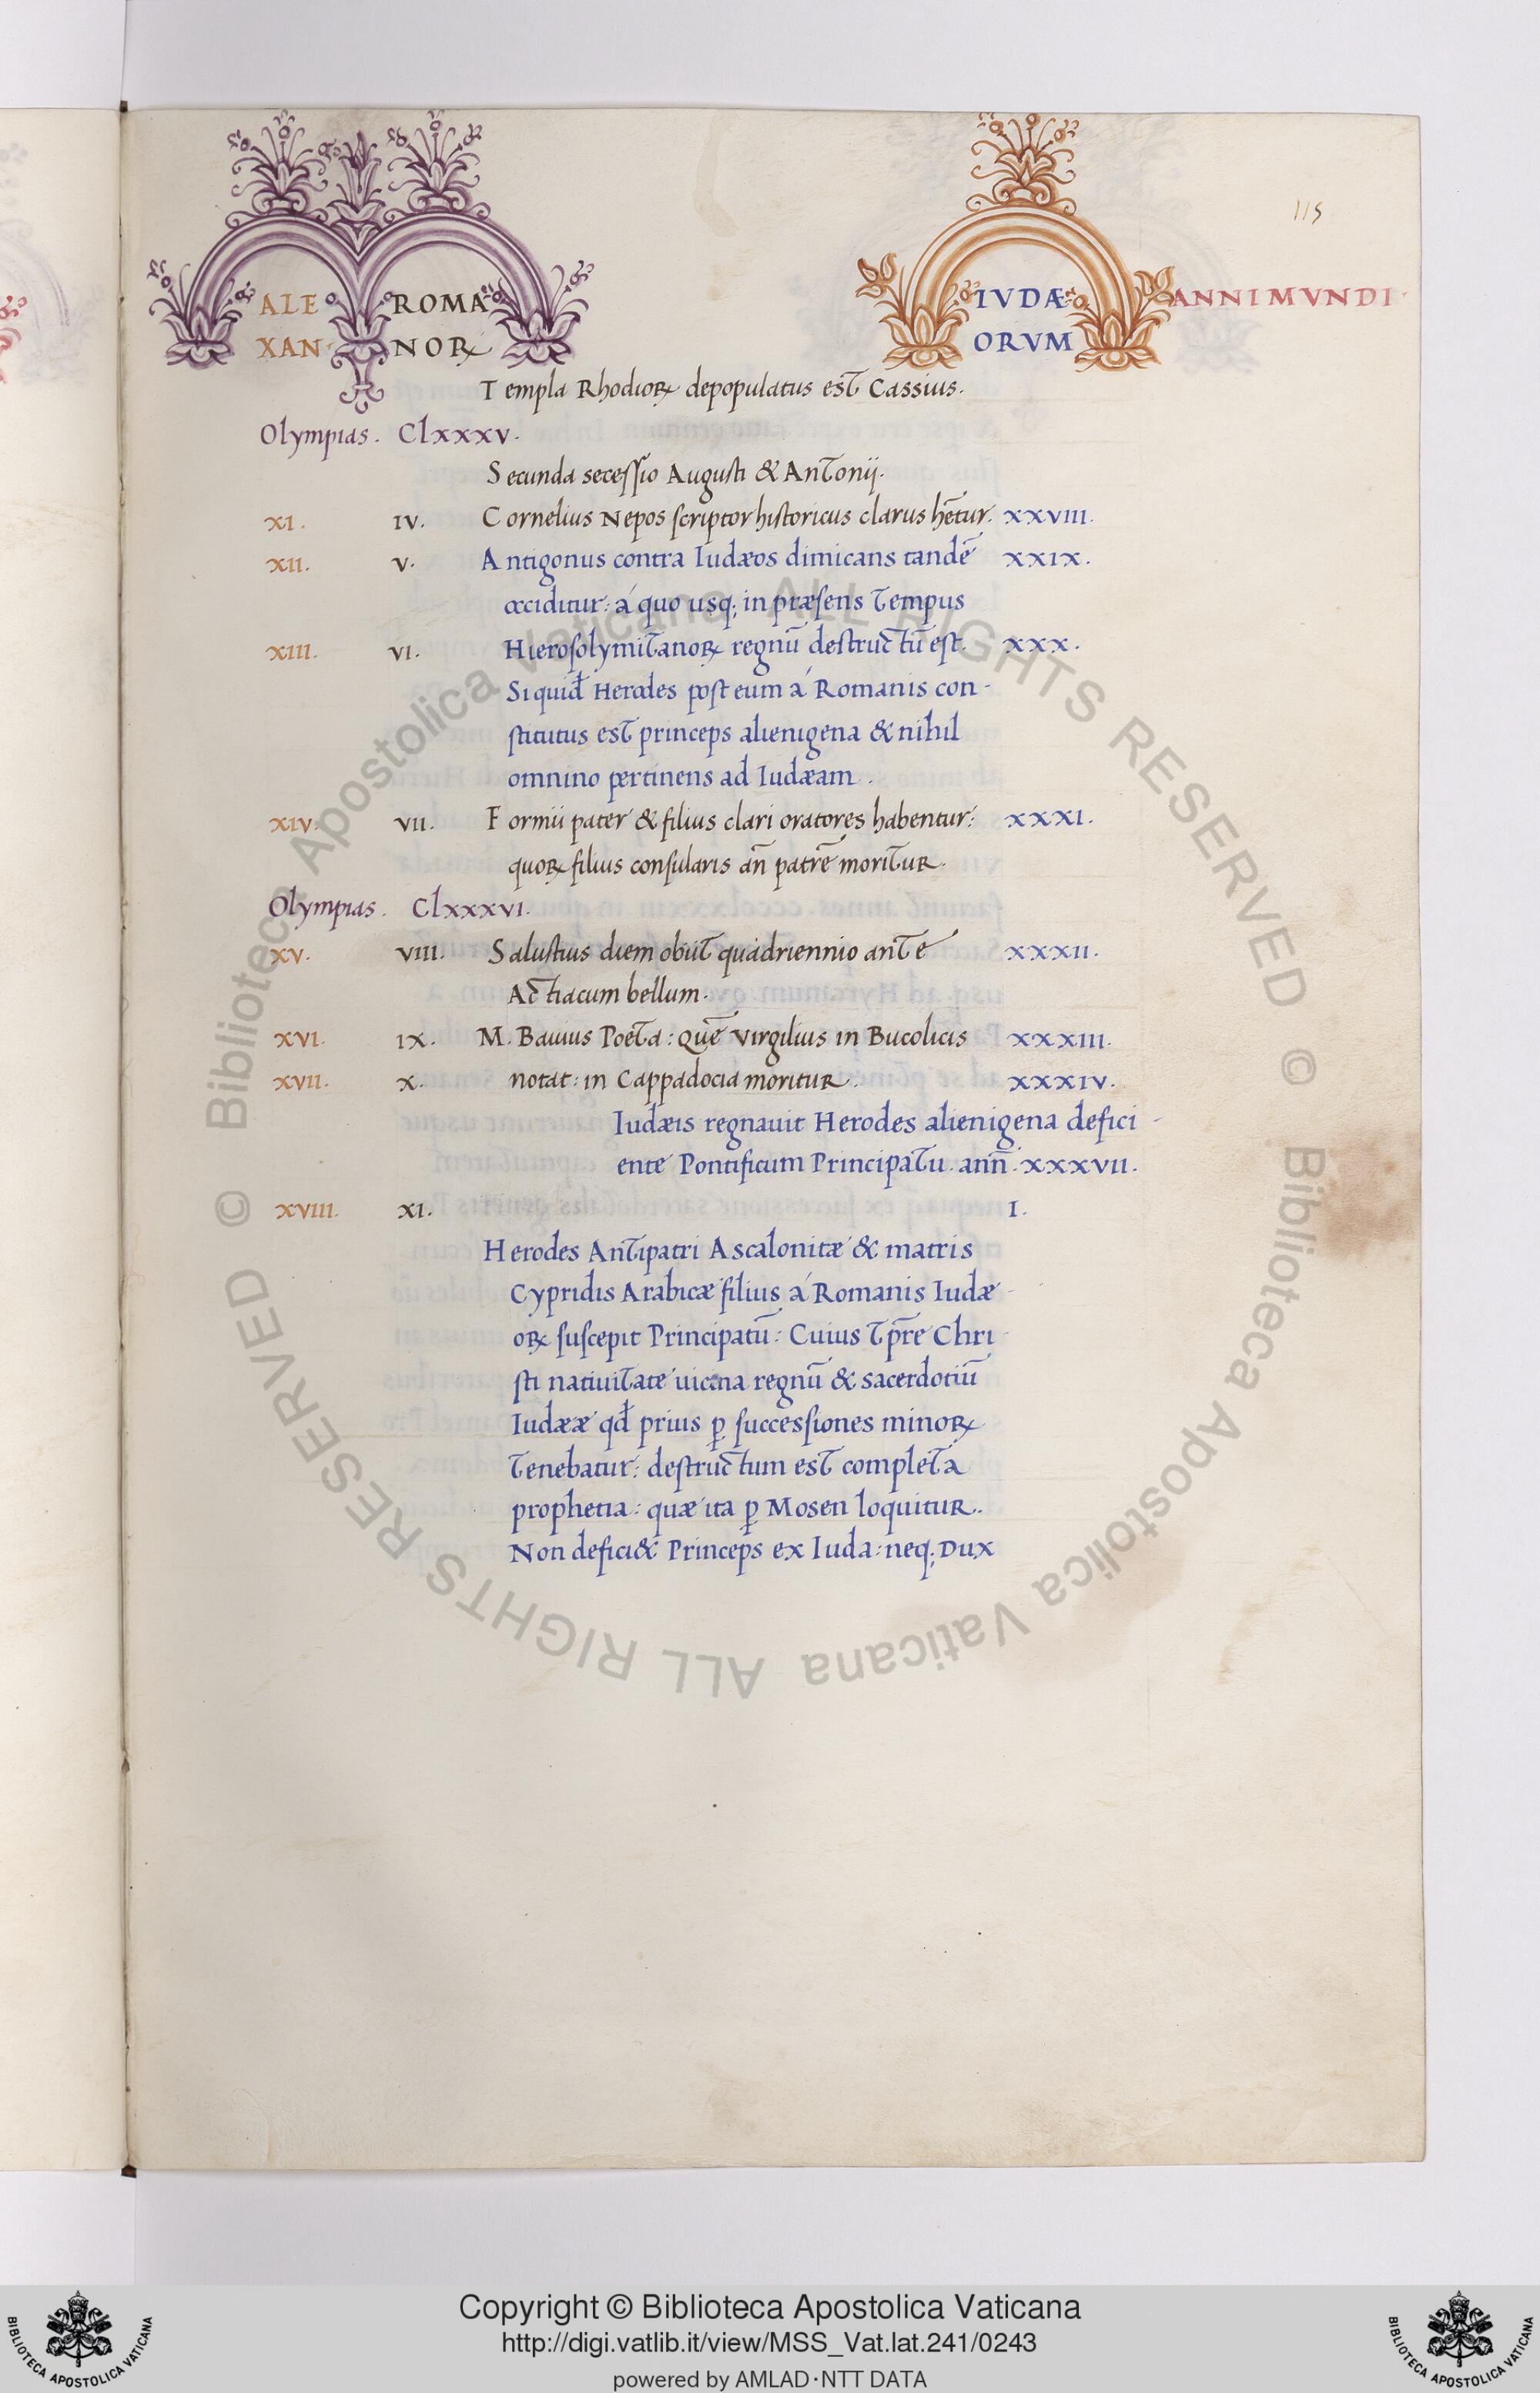 115
ALE ROMA IVDÆ ANNI MVNDI
XAN NOꝜ ORVM
Templa Rhodioꝝ depopulatus est Cassius.
Olympias. Clxxxv.
Secunda secessio Augusti & Antonij.
XI. IV. Cornelius Nepos scriptor historicus clarus hētur. XXVIII.
XII. V. Antigonus contra Iudæos dimicans tandē XXIX.
occiditur: á quo usq; in præsens tempus
XIII. VI. Hierosolymitanoꝝ regnū destructū est. XXX.
Siquid Herodes post eum á Romanis con-
stitutus est princeps alienigena & nihil
omnino pertinens ad Iudæam.
XIV. VII. Formii pater & filius clari oratores habentur: XXXI.
quoꝝ filius consularis añ patrē moritur.
Olympias. Clxxxvi.
XV. VIII. Salustius diem obiit quadriennio ante XXXII.
Actiacum bellum.
XVI. IX. M. Bauius Poeta: Quē Virgilius in Bucolicis XXXIII.
XVII. X. notat: in Cappadocia moritur. XXXIV.
Iudæis regnauit Herodes alienigena defici-
ente Pontificum Principatu. anñ. XXXVII.
XVIII. XI. I.
Herodes Antipatri Ascalonitæ & matris
Cypridis Arabicæ filius á Romanis Iudæ-
oꝝ suscepit Principatū: Cuius tp̄re Chri-
sti natiuitate uicina regnū & sacerdotiū
Iudææ qđ prius ꝑ successiones minoꝝ
tenebatur: destructum est completa
prophetia: quæ ita ꝑ Mosen loquitur.
Non defici& Princeps ex Iuda: neq; Dux
© Biblioteca Apostolica Vaticana ALL RIGHTS RESERVED © Biblioteca Apostolica Vaticana ALL RIGHTS RESERVED
Copyright © Biblioteca Apostolica Vaticana
http://digi.vatlib.it/view/MSS_Vat.lat.241/0243
powered by AMLAD·NTT DATA
BIBLIOTECA APOSTOLICA VATICANA
BIBLIOTECA APOSTOLICA VATICANA